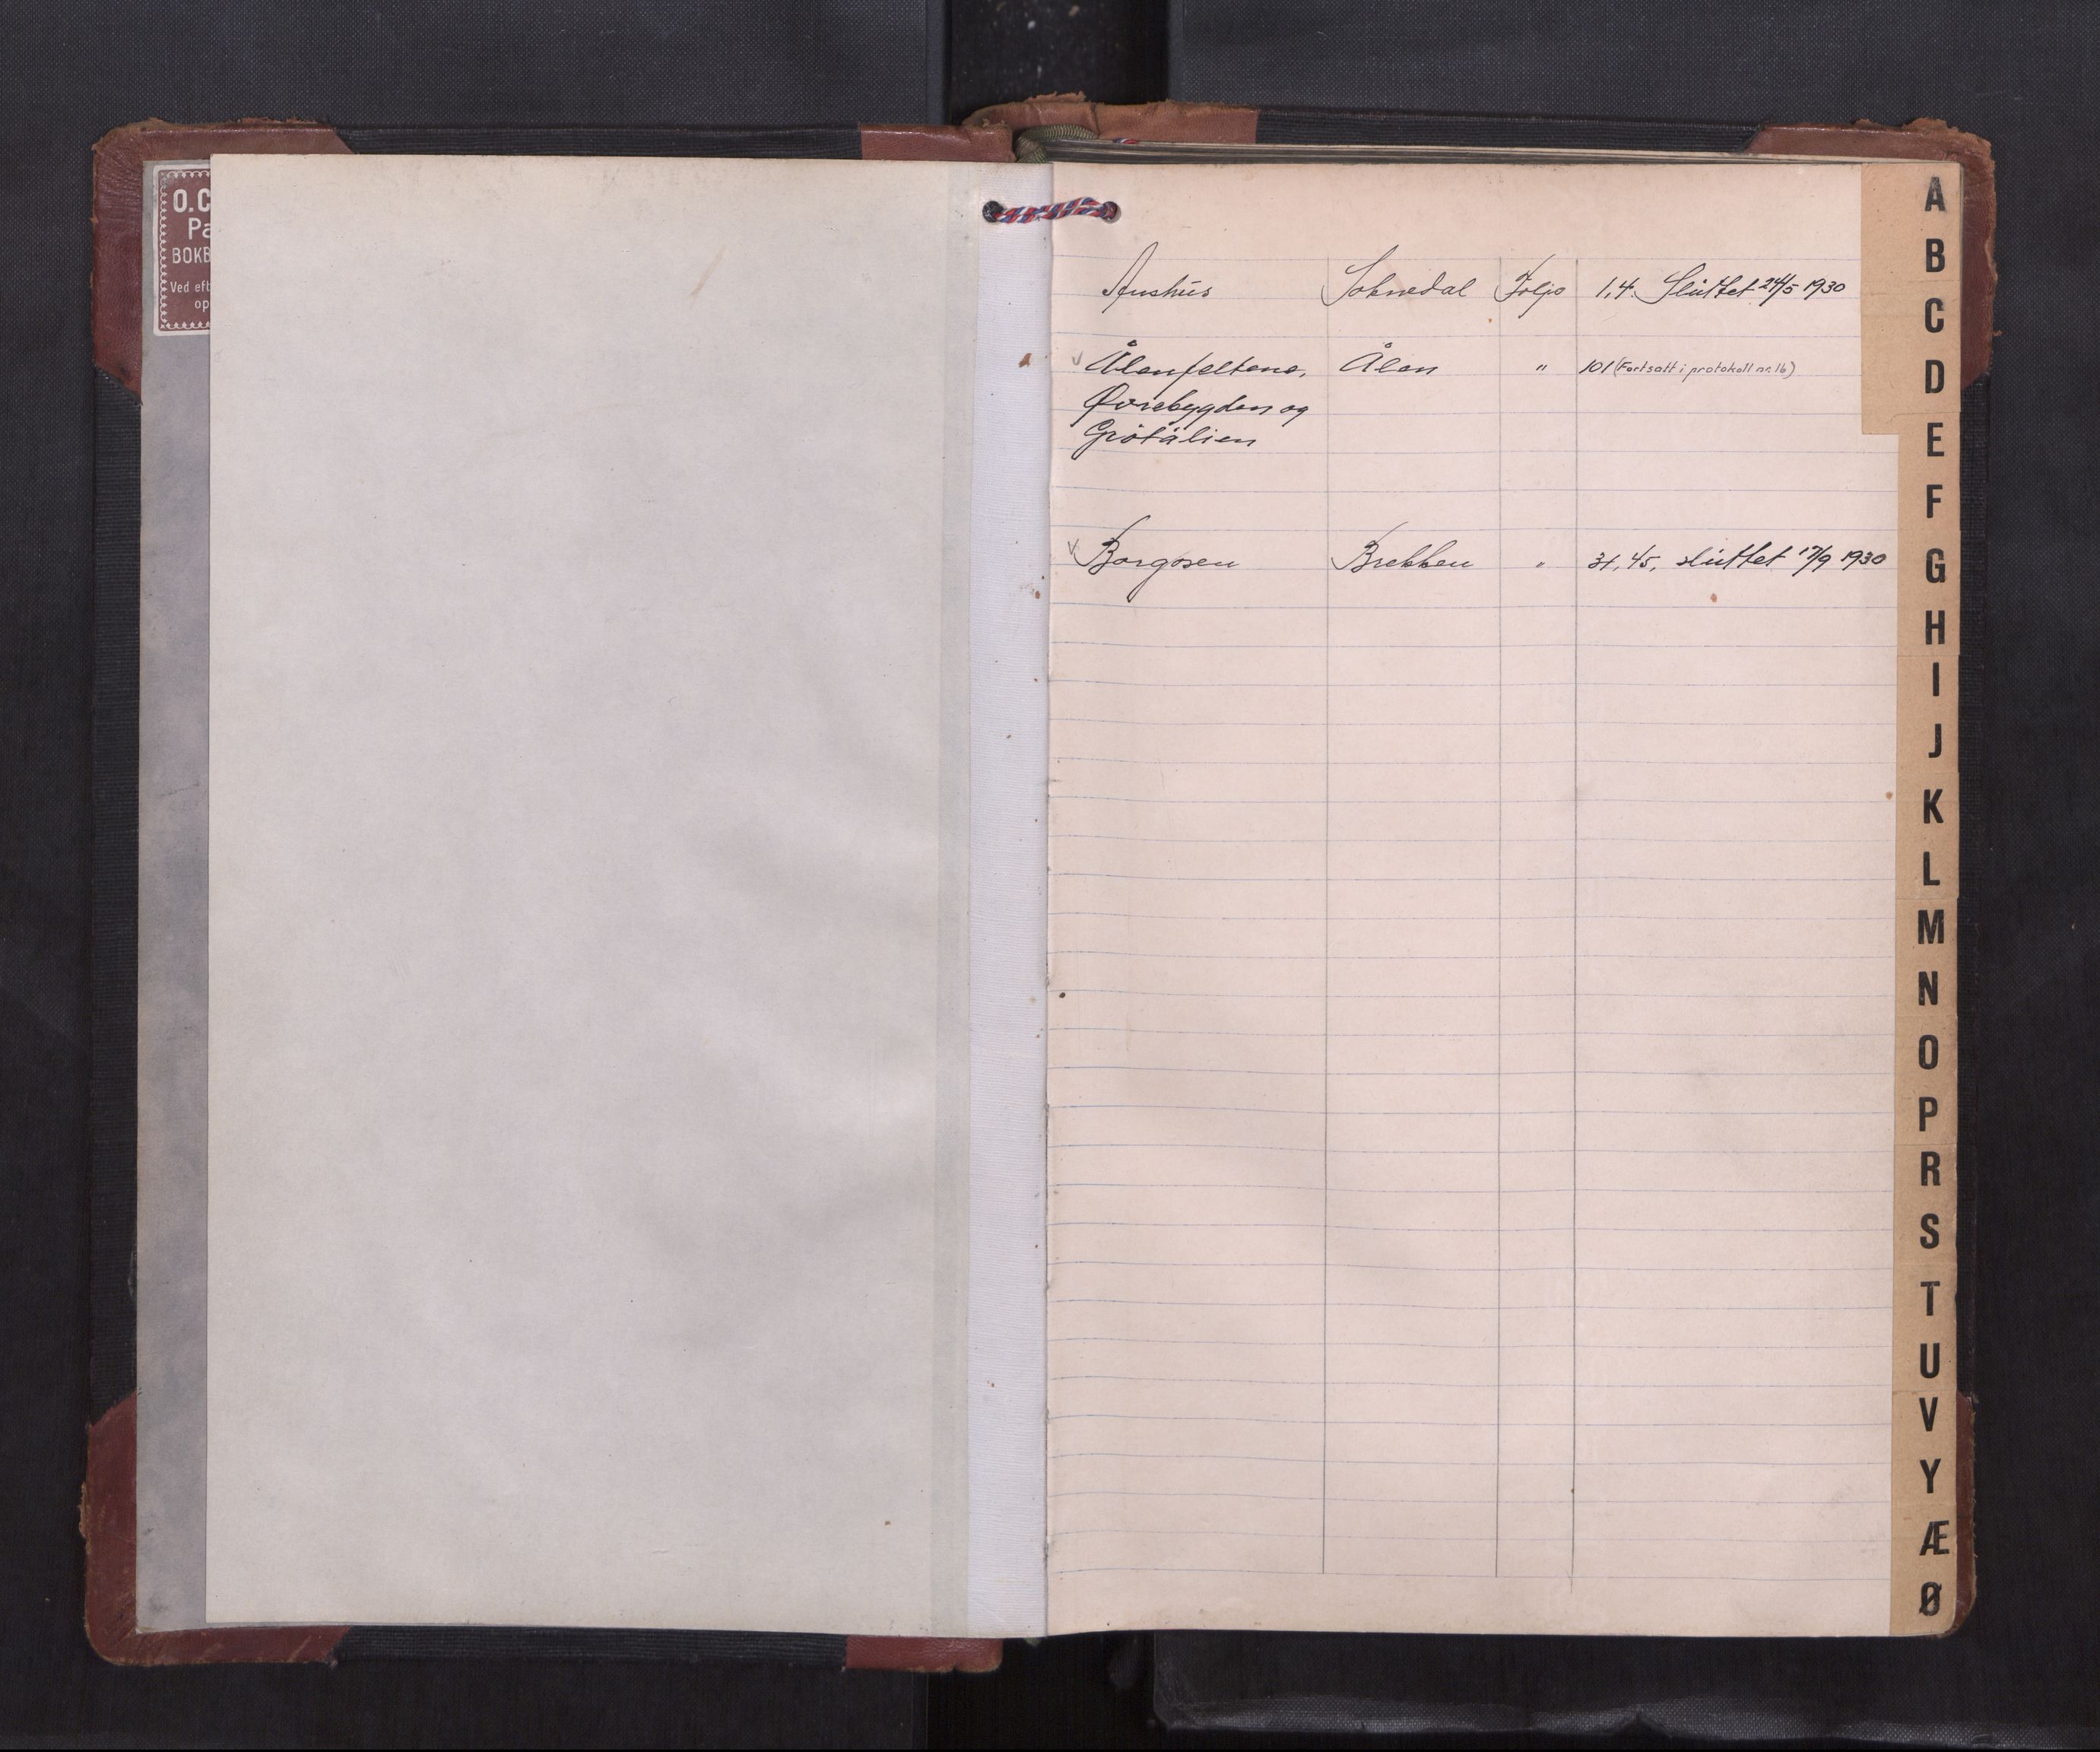 O.C
Pa
BOKB
Ved eft
op
Aushus Soknedal Foljo 1,4. Sluttet 24/5 1930
Ålenfeltene, Ålen " 101 (Fortsatt i protokoll nr. 16)
Øvrebygden og
Grötålien
Borgosen Brekken " 31, 45, sluttet 17/9 1930
A
B
C
D
E
F
G
H
I
J
K
L
M
N
O
P
R
S
T
U
V
Y
Æ
Ø